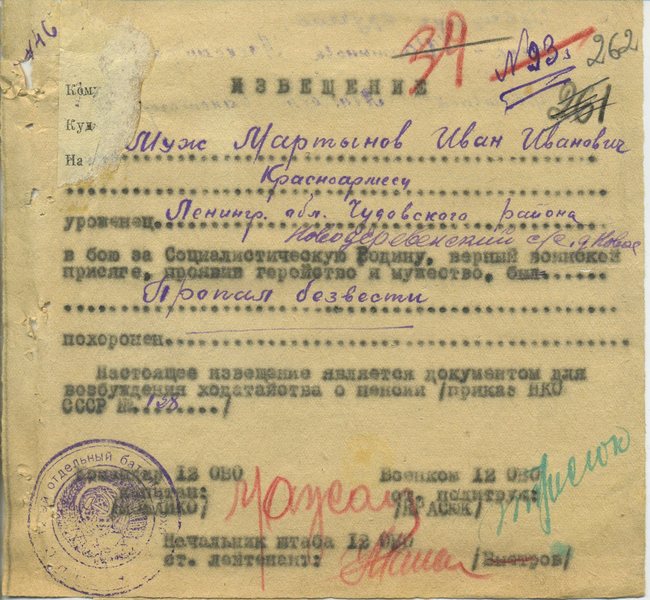 446
34 № 23 262
261
ИЗВЕЩЕНИЕ
Кому
Куд
На
Муж Мартынов Иван Иванович
Красноармеец
уроженец Ленингр. обл. Чудовского района
Новодеревенский с/с. д Новое
в бою за Социалистическую Родину, верный воинской
присяге, проявив геройство и мужество, был
Пропал безвести
похоронен
Настоящее извещение является документом для
возбуждения ходатайства о пенсии /приказ НКО
СССР № 138 /
Командир 12 ОВО Военком 12 ОВО
капитан: ст. политрук:
отдельный бат
Начальник штаба 12 ОВО
ст. лейтенант: /Быстров/